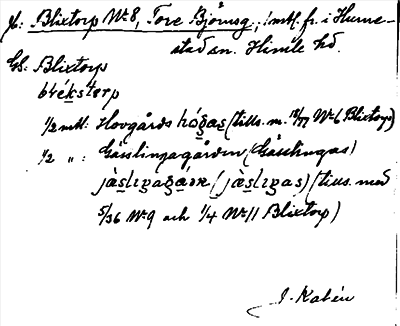 Blixtorp Nr 8, Tore Björnsg., 1 mtl. fr. i Hunne-
stad sn. Himle hd.
Blixtorp
½ mtl: Hovgårds (tills. m. Nr 6 Blixtorp)
½ ": Gässlingagården (Gässlingas)
(tills. med
5/36 Nr 9 och ¼ Nr 11 Blixtorp)
J. Kalén